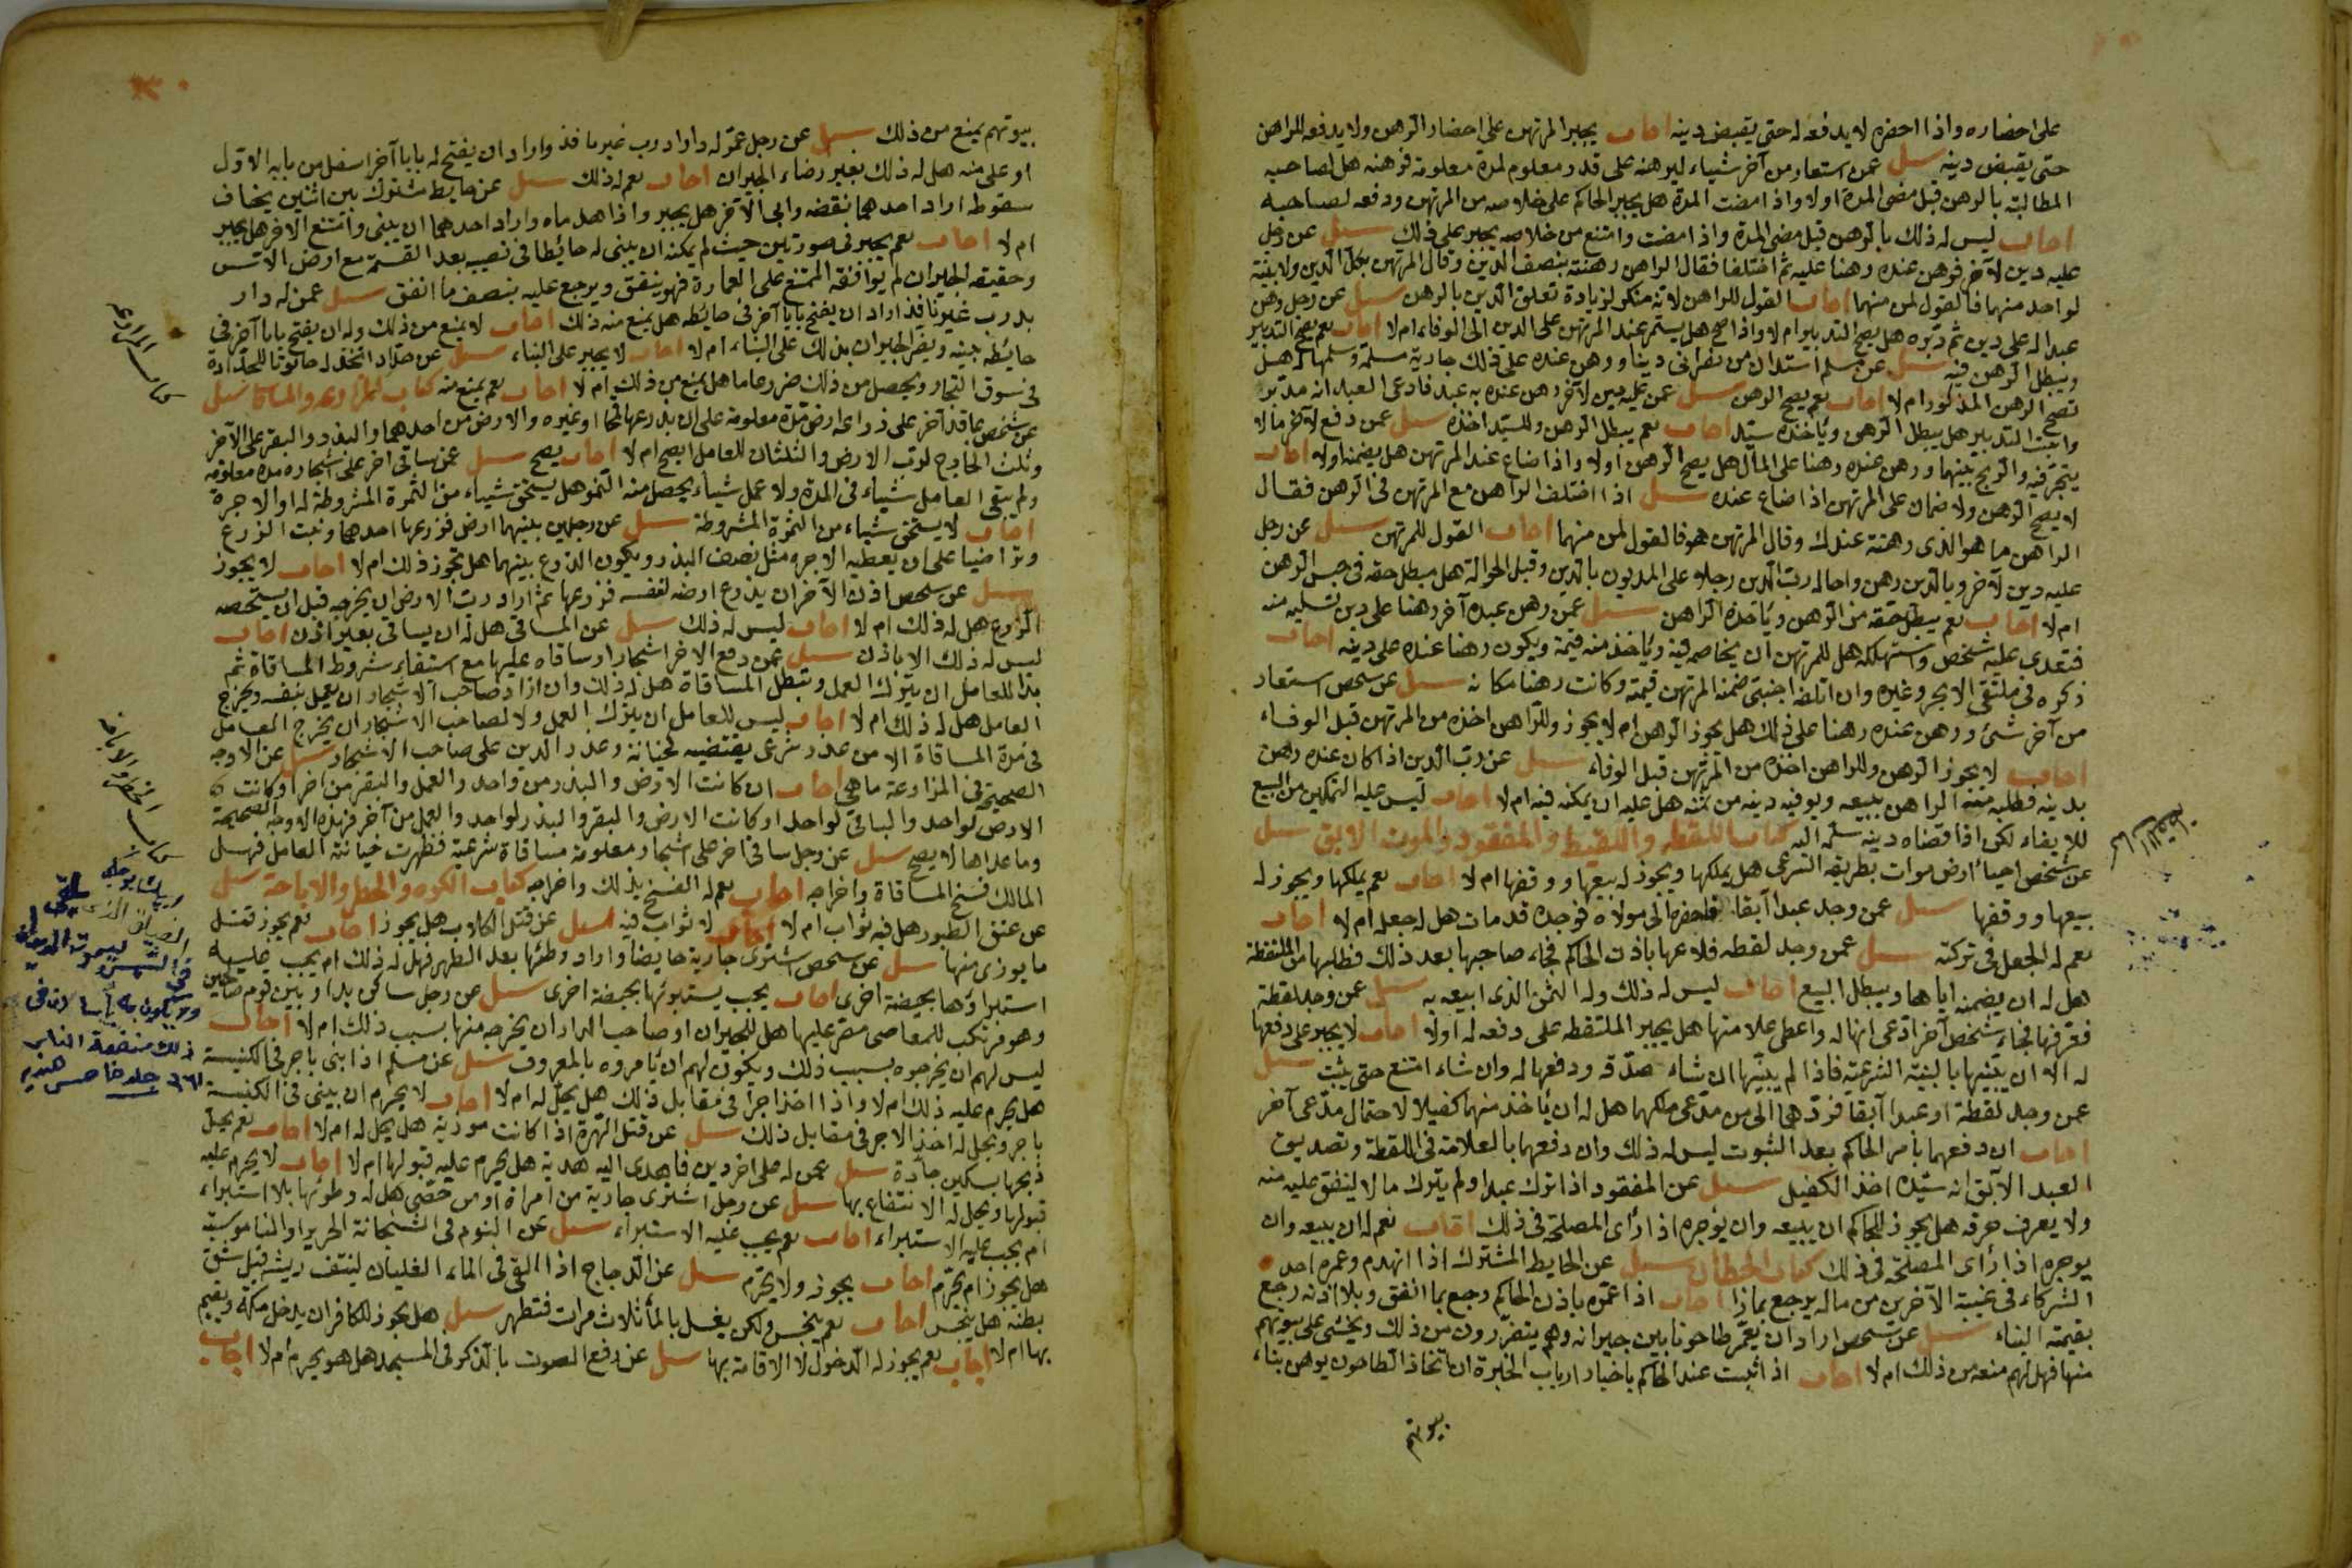 على احضاره واذا احضره لا يدفعه له حتى يقبض دينه اجاب يجبر المرتهن على احضار الرهن ولا يدفعه للراهن
حتى يقبض دينه سئل عمن استعار من آخر شياء ليرهنه على قدر معلوم لمدة معلومة فرهنه هل لصاحبه
المطالبة بالرهن قبل مضى المدة اولا واذا مضت المدة هل يجبر الحاكم على خلاصه من المرتهن ودفعه لصاحبه
اجاب ليس له ذلك بالرهن قبل مضى المدة واذا مضت وامتنع من خلاصه يجبر على ذلك سئل عن رجل
عليه دين لآخر فرهن عنده رهنا عليه ثم اختلفا فقال الراهن رهنته بنصف الدين وقال المرتهن بكل الدين ولا بينة
لواحد منهما فالقول لمن منهما اجاب القول للراهن لانه منكر لزيادة تعلق الدين بالرهن سئل عن رجل رهن
عبدا له على دين ثم دبره هل يصح التدبير ام لا واذا صح هل يستمر عند المرتهن على الدين الى الوفاء ام لا اجاب نعم يصح التدبير
ويبطل الرهن فيه سئل عن مسلم استدان من نصرانى دينا ورهن عنده على ذلك جارية مسلمة وسلمها له هل
تصح الرهن المذكور ام لا اجاب نعم يصح الرهن سئل عمن عليه دين لآخر رهن عنده به عبد فادعى العبد انه مدبر
واثبت التدبير هل يبطل الرهن ويأخذه سيد اجاب نعم يبطل الرهن وللسيد اخذه سئل عمن دفع لآخر مالا
يتجر فيه والربح بينهما ورهن عنده رهنا على المال هل يصح الرهن اولا واذا ضاع عند المرتهن هل يضمنه اولا اجاب
لا يصح الرهن ولا ضمان على المرتهن اذا ضاع عنده سئل اذا اختلف الراهن مع المرتهن فى الرهن فقال
الراهن ما هو الذى رهنته عندك وقال المرتهن هو فالقول لمن منهما اجاب القول للمرتهن سئل عن رجل
عليه دين لآخر وبالدين رهن واحاله رب الدين رجلا على المديون بالدين وقبل الحوالة هل مبطل حقه فى حبس الرهن
ام لا اجاب نعم يبطل حقه من الرهن ويأخذه الراهن سئل عمن رهن عبده آخر رهنا على دين تسليه منه
فتعدى عليه شخص واستهلكه هل للمرتهن ان يخاصمه فيه ويأخذ منه قيمة ويكون رهنا عنده على دينه اجاب
ذكره فى ملتقى الابحر وغيره وان اتلفه اجنبى ضمنه المرتهن قيمته وكانت رهنا مكانه سئل عن شخص استعار
من آخر شئ ورهن عنده رهنا على ذلك هل يجوز الرهن ام لا يجوز وللراهن اخذه من المرتهن قبل الوفاء
اجاب لا يجوز الرهن وللراهن اخذه من المرتهن قبل الوفاء سئل عن رب الدين اذا كان عنده رهن
بدينه فطلبه منه الراهن ببيعه ويوفيه دينه من ثمنه هل عليه ان يمكنه فيه ام لا اجاب ليس عليه التمكين من البيع
للايفاء لكن اذا قضاه دينه سلمه اليه كتاب اللقطه واللقيط والمفقود والموت الابق سئل
عن شخص احيا ارض موات بطريقه الشرعى هل يملكها ويجوز له بيعها ووقفها ام لا اجاب نعم يملكها ويجوز له
بيعها ووقفها سئل عمن وجد عبدا آبقا فاحضره الى مولاه فوجده قد مات هل له جعل ام لا اجاب
نعم له الجعل فى تركته سئل عمن وجد لقطه فلا عها باذن الحاكم فجاء صاحبها بعد ذلك فطلبها من الملتقطة
هل له ان يضمنه اياهما ويبطل البيع اجاب ليس له ذلك وله الثمن الذى ابيعه به سئل عمن وجد لقطة
فعرفها فجاء شخص آخر ادعى انها له واعطى علامتها هل يجبر الملتقطه على دفعه له اولا اجاب لا يجبر على دفعها
له الا ان يبينها بالبينة الشرعية فاذا لم يبينها ان شاء صدقه ودفعها له وان شاء امتنع حتى يثبت سئل
عمن وجد لقطة او عبدا آبقا فردهما الى من مدعى ملكهما هل له ان يأخذ منهما كفيلا لاحتمال مدعى آخر
اجاب ان دفعهما بأمر الحاكم بعد الثبوت ليس له ذلك وان دفعهما بالعلامة فى اللقطة وتصديق
العبد الآبق انه سيده اخذ الكفيل سئل عن المفقود اذا ترك عبدا ولم يترك مالا لينفق عليه منه
ولا يعرف حرفه هل يجوز للحاكم ان يبيعه وان يؤجره اذا رأى المصلحة فى ذلك اجاب نعم له ان يبيعه وان
يوجره اذا رأى المصلحة فى ذلك كتاب الحيطان سئل عن الحايط المشترك اذا انهدم وعمره احد
الشركاء فى غيبة الآخرين من ماله يرجع بماذا اجاب اذا عمره باذن الحاكم رجع بما انفق وبلا اذنه رجع
بقيمة البناء سئل عن شخص اراد ان يعمر طاحونا بين جيرانه وهم يتضررون من ذلك ويخشى على بيوتهم
منها فهل لهم منعه من ذلك ام لا اجاب اذا ثبت عند الحاكم باخبار ارباب الخبرة ان اتخاذ الطاحون يوهن بناء
بيوتهم
بيوتهم يمنع من ذلك سئل عن رجل عمر له دارا درب غير نافذ واراد ان يفتح له بابا آخر اسفل من بابه الاول
او على منه هل له ذلك بغير رضاء الجيران اجاب نعم له ذلك سئل عن حايط مشترك بين اثنين يخاف
سقوطه اراد احدهما نقضه وابى الآخر هل يجبر واذا هدماه واراد احدهما ان يبنى وامتنع الاخر هل يجبر
ام لا اجاب نعم يجبر فى صورتين حيث لم يمكنه ان يبنى له حائطا فى نصيبه بعد القسمة مع ارض الاس
وحقيقه الجيران لم يوافقه الممتنع على العمارة فهو ينفق ويرجع عليه بنصف ما انفق سئل عمن له دار
بدرب غير نافذ اراد ان يفتح بابا آخر فى حائطه هل يمنع منه ذلك اجاب لا يمنع من ذلك وله ان يفتح بابا آخر فى
حائطه جنبه ويضر الجيران بذلك على البناء ام لا اجاب لا يجبر على البناء سئل عن حداد اتخذ له حانوتا للحدادة
فى سوق التجار ويحصل من ذلك ضررعاما هل يمنع من ذلك ام لا اجاب نعم يمنع منه كتاب المزارعه والمساقاة سئل
عن شخص عاقد آخر على زراعة ارض مدة معلومة على ان يزرعها قمحا او غيره والارض من احدهما والبذر والبقر على الآخر
وثلث الخارج لرب الارض والثلثان للعامل ايصح ام لا اجاب يصح سئل عمن ساقى اخر على اشجاره مدة معلومه
ولم يبق العامل شياء فى المدة ولا عمل شياء يحصل منه النمو هل يستحق شياء من الثمرة المشروطة له او الاجرة
اجاب لا يستحق شياء من الثمرة المشروطة سئل عن رجلين بينهما ارض فزرعها احدهما ونبت الزرع
وتراضيا على ان يعطيه الاجره مثل نصف البذر ويكون الزرع بينهما هل يجوز ذلك ام لا اجاب لا يجوز
سئل عن شخص اذن الآخر ان يزرع ارضه لنفسه فزرعها ثم اراد رب الارض ان يخرجه قبل ان يستحصد
الزرع هل له ذلك ام لا اجاب ليس له ذلك سئل عن المساقى هل له ان يساقى بغير اذن اجاب
ليس له ذلك الا باذن سئل عمن دفع لاخر اشجارا وساقاه عليها مع استيفاء شروط المساقاة ثم
بدا للعامل ان يترك العمل وتبطل المساقاة هل له ذلك وان اراد صاحب الاشجار ان يعمل بنفسه ويخرج
العامل هل له ذلك ام لا اجاب ليس للعامل ان يترك العمل ولا لصاحب الاشجار ان يخرج العامل
فى مدة المساقاة الا من عذر شرعى يقتضيه لخيانة وعذر الدين على صاحب الاشجار سئل عن الاوجه
الصحيحة فى المزارعة ما هى اجاب ان كانت الارض والبذر من واحد والعمل والبقر من اخر او كانت
الارض لواحد والباقى لواحد او كانت الارض والبقر والبذر لواحد والعمل من آخر فهذه الاوجه الصحيحة
وما عداها لا يصح سئل عن رجل ساقى اخر على اشجار معلومة مساقاة شرعية فظهرت خيانة العامل فهل
المالك فسخ المساقاة واخراجه اجاب نعم له الفسخ بذلك واخراجه كتاب الكره والحظر والاباحة سئل
عن عتق الطيور هل فيه ثواب ام لا اجاب لا ثواب فيه سئل عن قتل الكلاب هل يجوز اجاب نعم يجوز قتل
ما يوذى منها سئل عن شخص اشترى جارية حايضا واراد وطئها بعد الطهر فهل له ذلك ام يجب عليه
استبراؤها بحيضة اخرى اجاب يجب يستبرئها بحيضة اخرى سئل عن رجل ساكن بدار وبين قوم صالحين
وهو مرتكب للمعاصى مصر عليها هل للجيران او صاحب الدار ان يخرجه منها بسبب ذلك ام لا اجاب
ليس لهم ان يخرجوه بسبب ذلك ويكون لهم ان يأمروه بالمعروف سئل عن مسلم اذا ابنى باجر فى الكنيسة
هل يحرم عليه ذلك ام لا واذا اخذ اجرا فى مقابل ذلك هل يحل له ام لا اجاب لا يحرم ان يبنى فى الكنيسة
باجر ويحل له اخذ الاجر فى مقابل ذلك سئل عن قتل الهرة اذا كانت موذية هل يحل له ام لا اجاب نعم يحل
ذبحها بسكين حادة سئل عمن له على اخر دين فاهدى اليه هدية هل يحرم عليه قبولها ام لا اجاب لا يحرم عليه
قبولها ويحل له الانتفاع بها سئل عن رجل اشترى جارية من امراة او من خصى هل له وطوئها بلا استبراء
ام يجب عليه الاستبراء اجاب نعم يجب عليه الاستبراء سئل عن النوم فى الحرير او الناموسية
هل يجوز ام يحرم اجاب يجوز ولا يحرم سئل عن الدجاج اذا القى فى الماء الغليان لينتف ريشه قبل شق
بطنه هل ينجس اجاب نعم ينجس ولكن يغسل بالماء ثلاث مرات فتطهر سئل هل يجوز للكافر ان يدخل مكة ويقيم
بها ام لا اجاب نعم يجوز له الدخول لا الاقامة بها سئل عن رفع الصوت بالذكر فى المسجد هل هو يحرم ام لا اجاب
ذلك منفعة الناس